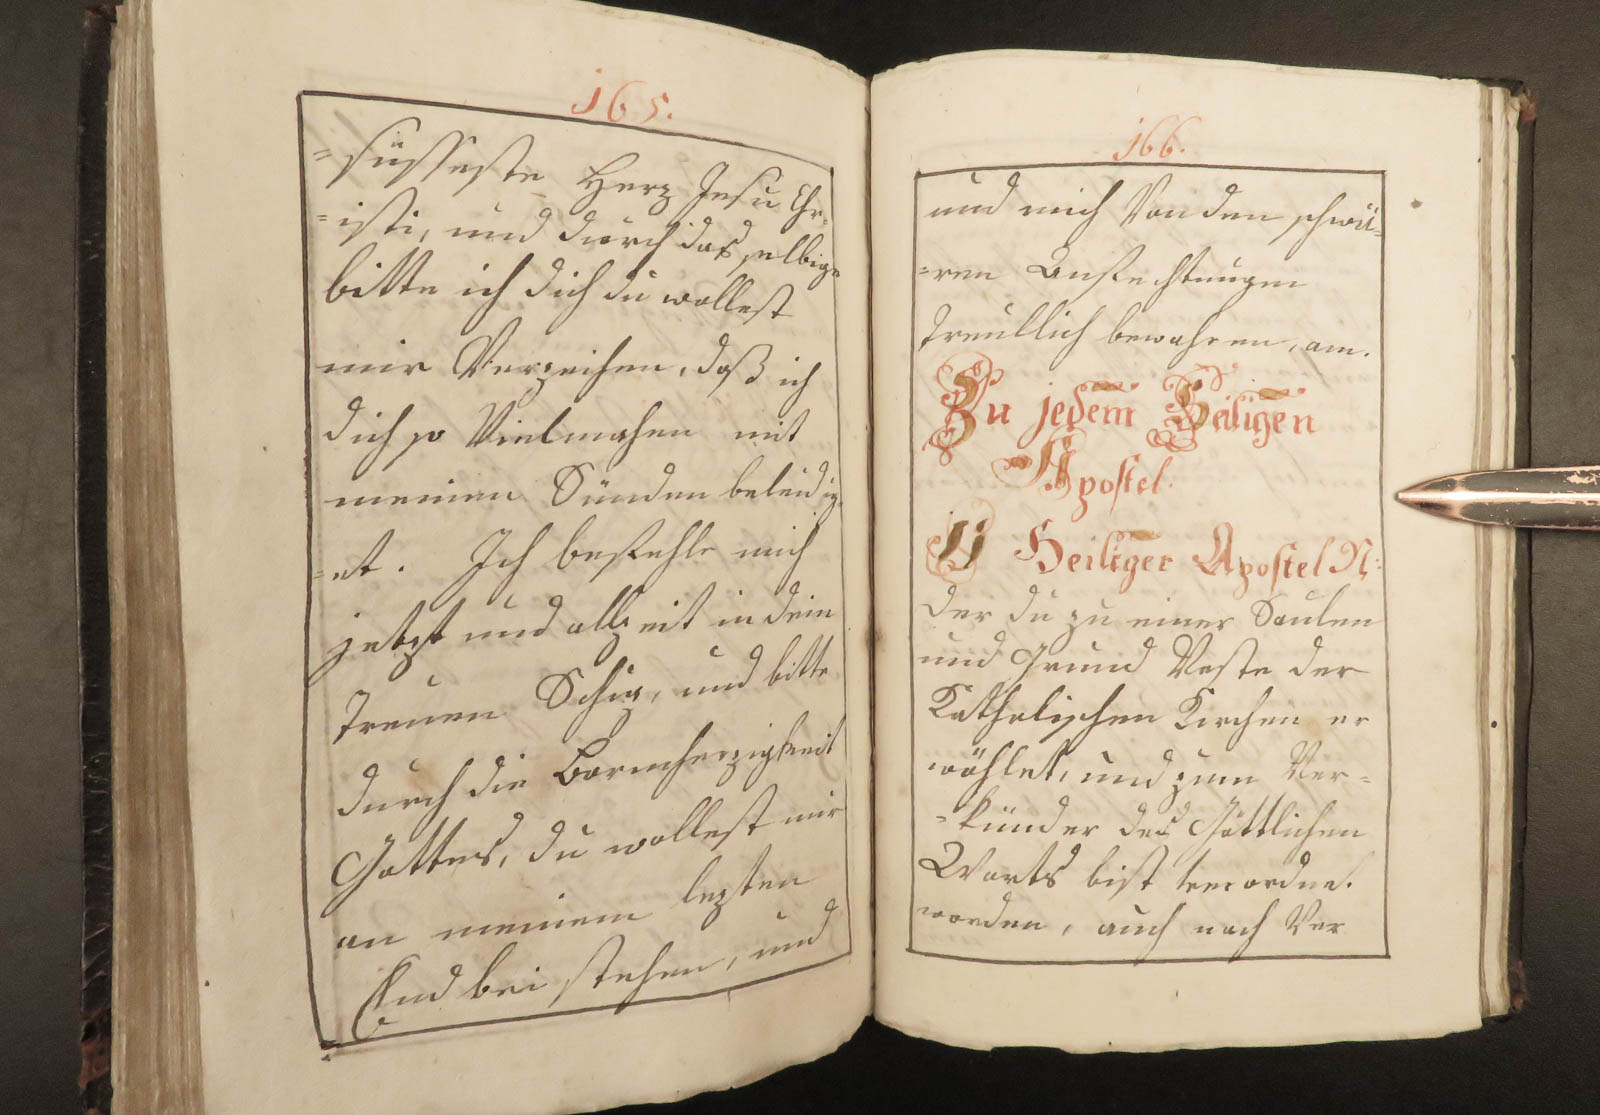 165.
=süsseste Herz Jesu Chr=
=isti, und durch das selbige
bitte ich dich du wollest
mir Verzeihen, daß ich
dich so Vielmahen mit
meinen Sünden beleidig=
=et. Ich befehle mich
jetzt und allzeit in dein
treuen Schuz, und bitte
durch die Barmherzigkeit
Gottes, du wollest mir
an meinem lezten
End bei stehen, und
166.
und mich Von den schwä=
=ren Anfechtungen
treullich bewahren, am.
Zu jedem Heiligen
Apostel.
O Heiliger Apostel N:
der du zu einer Saulen
und Grund Veste der
Katholischen Kirchen er
wöhlet, und zum Ver=
=künder des Göttlichen
Worts bist verordne.
worden, auch nach Ver